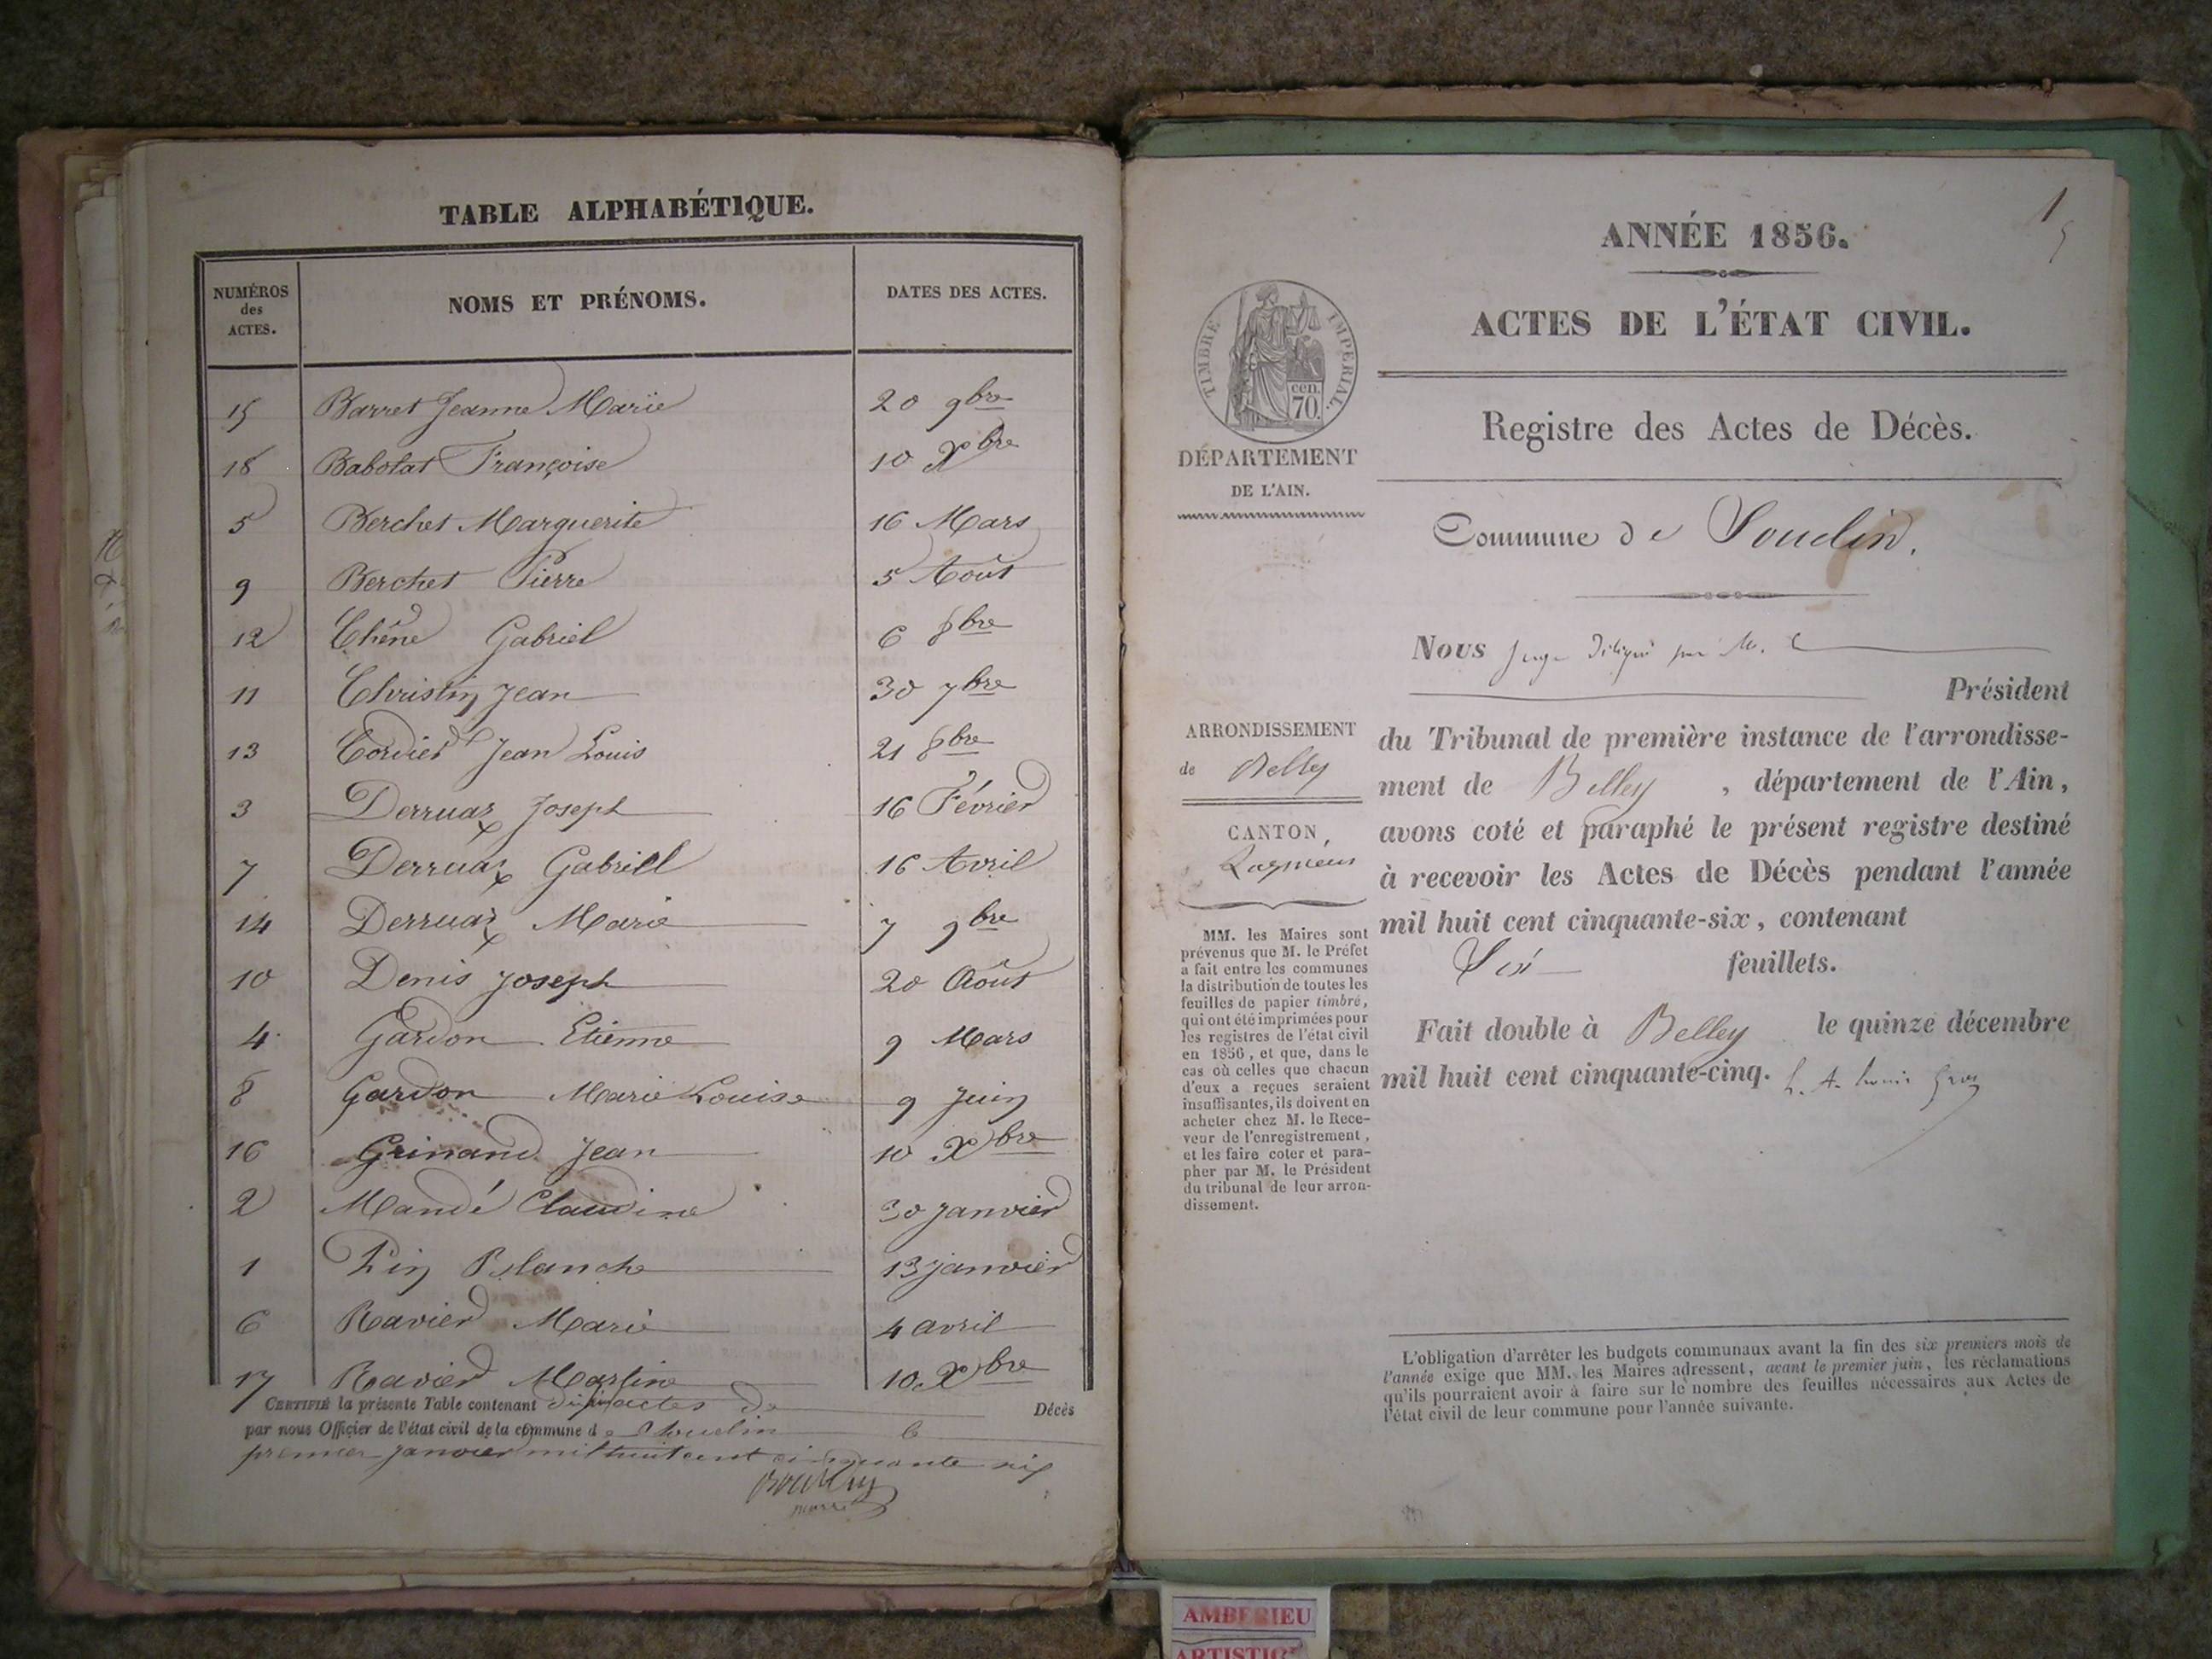 TABLE ALPHABÉTIQUE.
NUMÉROS des ACTES.
NOMS ET PRÉNOMS.
DATES DES ACTES.
15 Barret Jeanne Marie 20 9bre
18 Babolat Françoise 10 Xbre
5 Berchet Marguerite 16 Mars
9 Berchet Pierre 5 Août
12 Chêne Gabriel 6 8bre
11 Christin Jean 30 7bre
13 Cordier Jean Louis 21 8bre
3 Derruaz Joseph 16 Février
7 Derruaz Gabriel 16 Avril
14 Derruaz Marie 7 9bre
10 Denis Joseph 20 Août
4 Gardon Etienne 9 Mars
8 Gardon Marie Louise 9 Juin
16 Grinand Jean 10 Xbre
2 Mandé Claudine 30 janvier
1 Pin Blanche 13 janvier
6 Ravier Marie 4 avril
17 Ravier Martine 10 Xbre
CERTIFIÉ la présente Table contenant actes de Décès
par nous Officier de l'état civil de la commune de Souclin le
premier janvier mil huit cent cinquante six
maire
1
ANNÉE 1856.
ACTES DE L'ÉTAT CIVIL.
TIMBRE IMPÉRIAL.
cen.
70.
DÉPARTEMENT
DE L'AIN.
Registre des Actes de Décès.
Commune de Souclin.
Nous juge délégué par M. le
Président
du Tribunal de première instance de l'arrondisse-
ment de Belley, département de l'Ain,
avons coté et paraphé le présent registre destiné
à recevoir les Actes de Décès pendant l'année
mil huit cent cinquante-six, contenant
Six feuillets.
Fait double à Belley le quinze décembre
mil huit cent cinquante-cinq.
ARRONDISSEMENT
de Belley
CANTON,
Lagnieu
MM. les Maires sont
prévenus que M. le Préfet
a fait entre les communes
la distribution de toutes les
feuilles de papier timbré,
qui ont été imprimées pour
les registres de l'état civil
en 1856, et que, dans le
cas où celles que chacun
d'eux a reçues seraient
insuffisantes, ils doivent en
acheter chez M. le Rece-
veur de l'enregistrement,
et les faire coter et para-
pher par M. le Président
du tribunal de leur arron-
dissement.
L'obligation d'arrêter les budgets communaux avant la fin des six premiers mois de
l'année exige que MM. les Maires adressent, avant le premier juin, les réclamations
qu'ils pourraient avoir à faire sur le nombre des feuilles nécessaires aux Actes de
l'état civil de leur commune pour l'année suivante.
AMBERIEU